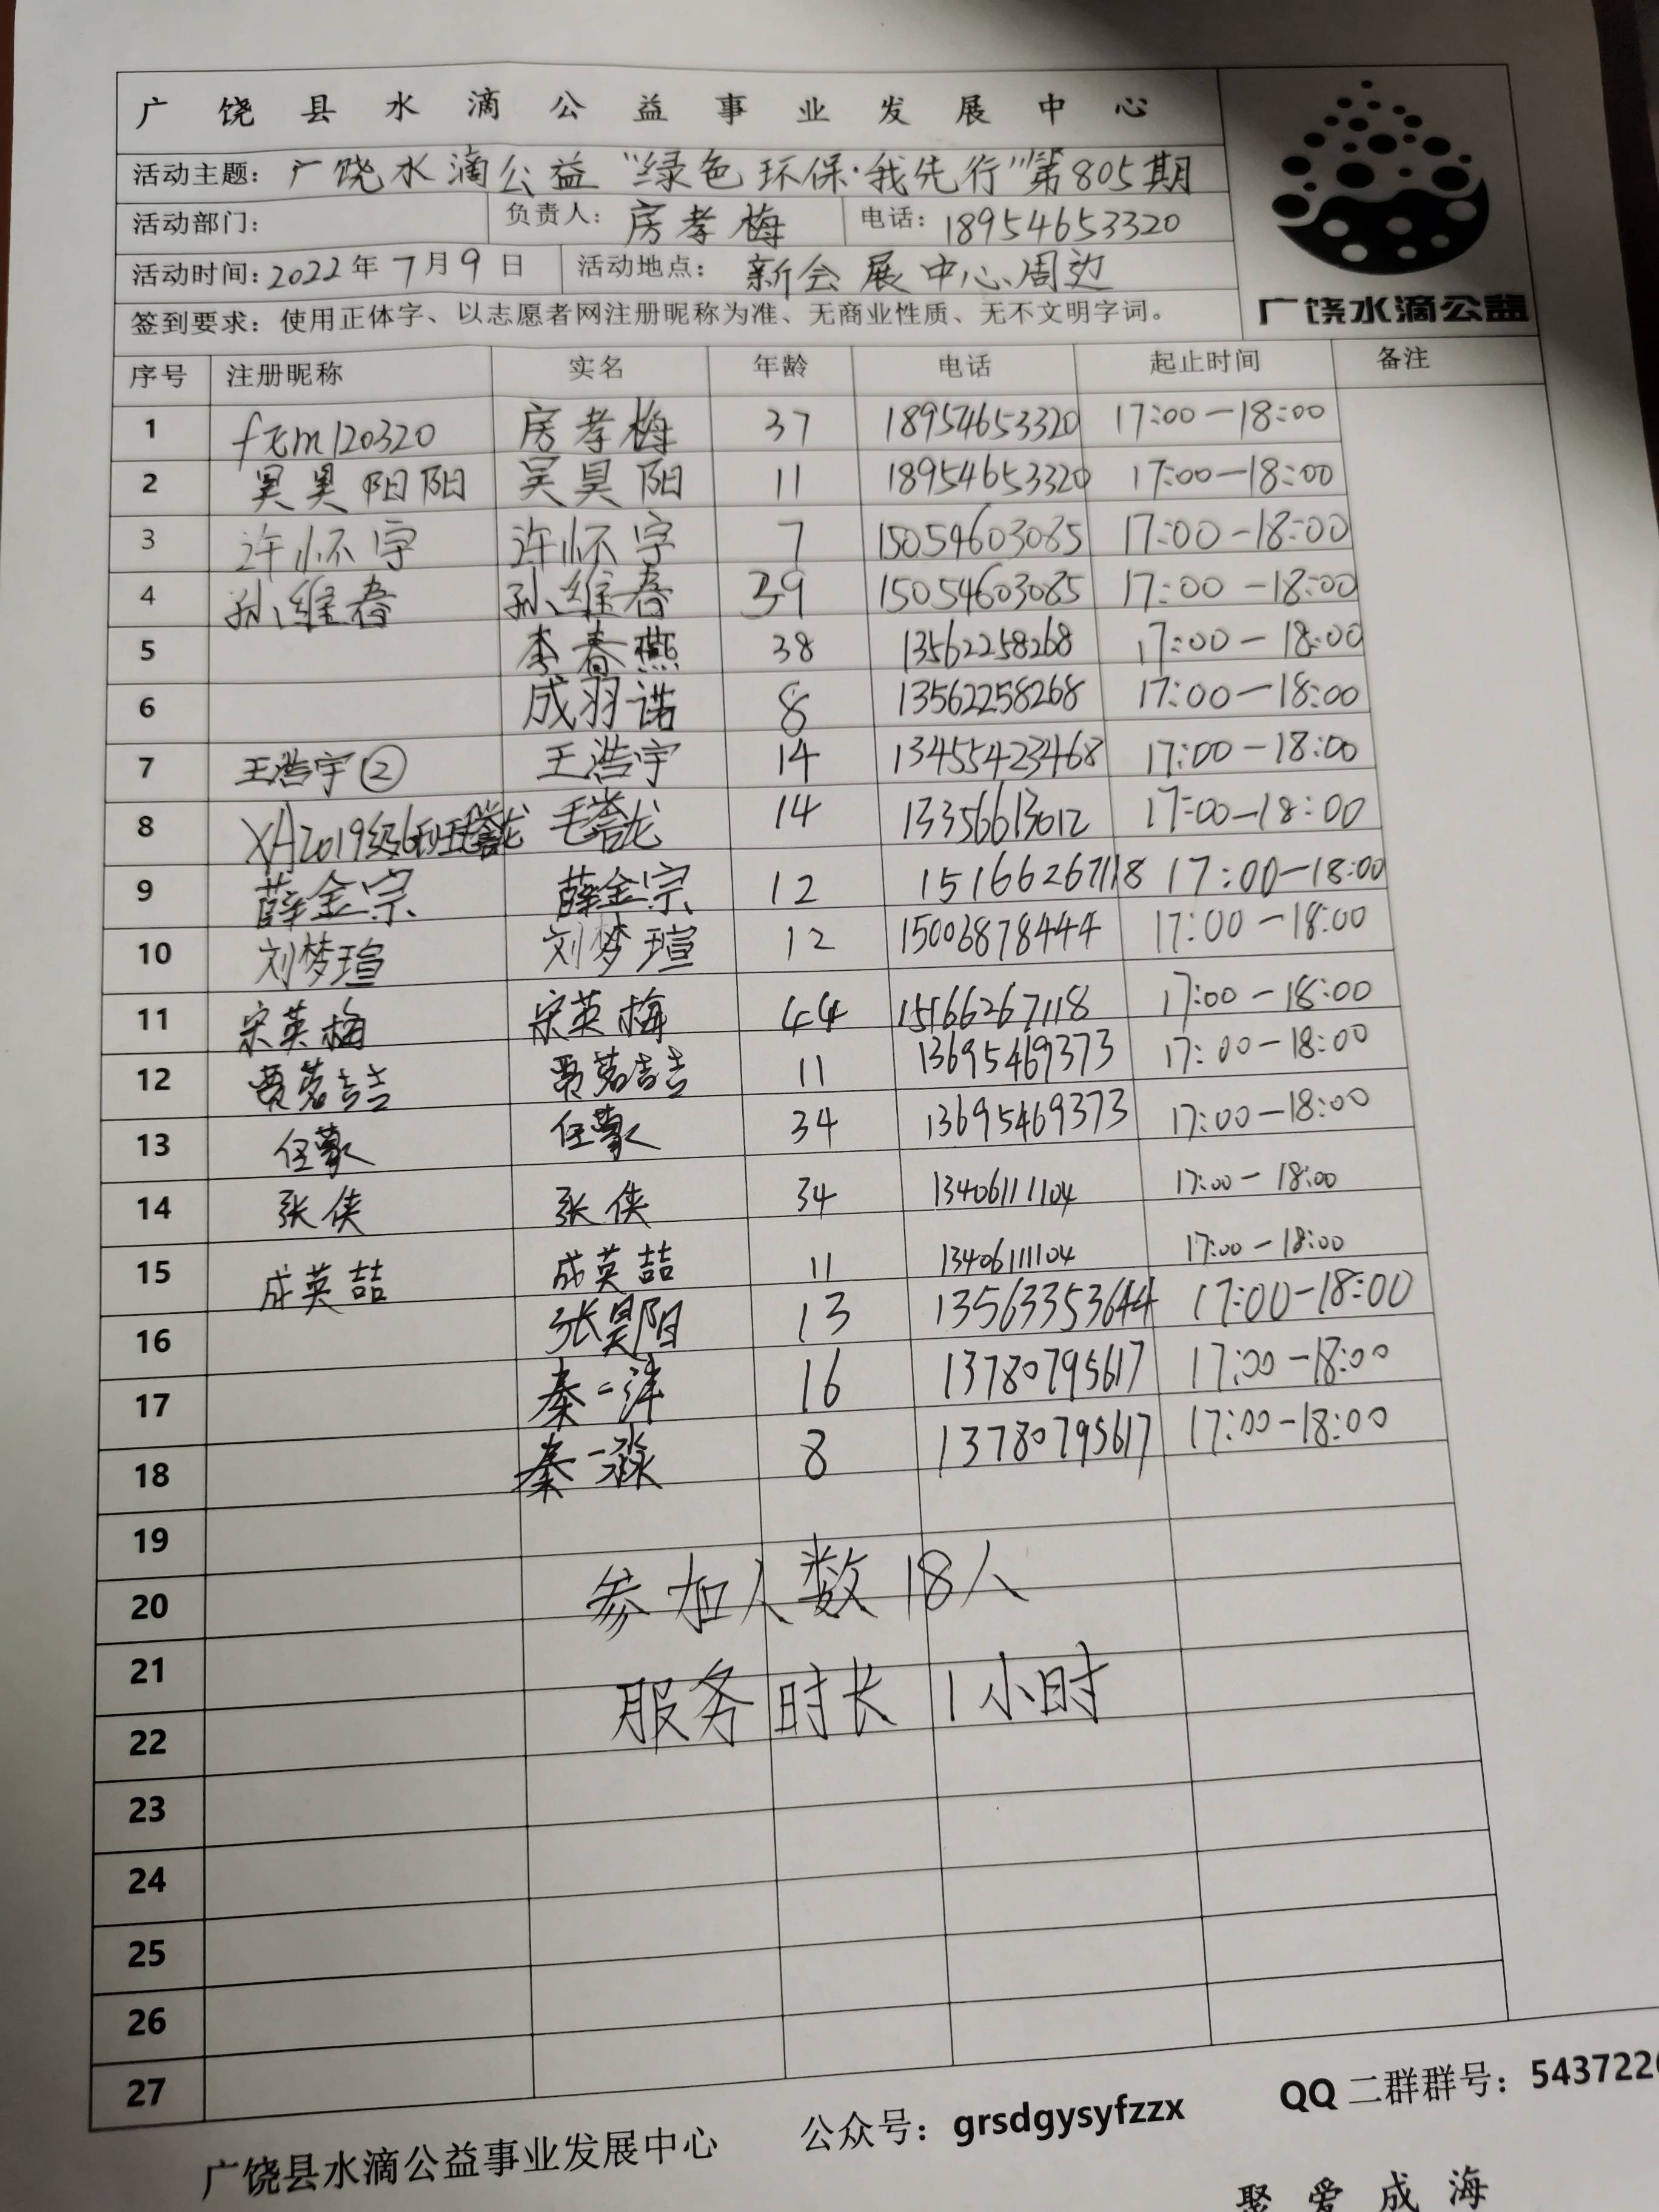 广饶县水滴公益事业发展中心
活动主题：广饶水滴公益“绿色环保·我先行”第805期
活动部门： 负责人：房孝梅 电话：18954653320
活动时间：2022年7月9日 活动地点：新会展中心周边
签到要求：使用正体字、以志愿者网注册昵称为准、无商业性质、无不文明字词。
广饶水滴公益
序号 注册昵称 实名 年龄 电话 起止时间 备注
1 fxm120320 房孝梅 37 18954653320 17:00-18:00
2 昊昊阳阳 吴昊阳 11 18954653320 17:00-18:00
3 许怀宇 许怀宇 7 15054603085 17:00-18:00
4 孙维春 孙维春 39 15054603085 17:00-18:00
5 李春燕 38 13562258268 17:00-18:00
6 成羽诺 8 13562258268 17:00-18:00
7 王浩宇② 王浩宇 14 13455423468 17:00-18:00
8 XA2019级6班毛誉龙 毛誉龙 14 13356613012 17:00-18:00
9 薛金宗 薛金宗 12 15166267118 17:00-18:00
10 刘梦瑄 刘梦瑄 12 15006878444 17:00-18:00
11 宋英梅 宋英梅 44 15166267118 17:00-18:00
12 贾茗喆 贾茗喆 11 13695469373 17:00-18:00
13 任蒙 任蒙 34 13695469373 17:00-18:00
14 张侠 张侠 34 13406111104 17:00-18:00
15 成英喆 成英喆 11 13406111104 17:00-18:00
16 张昊阳 13 13563353644 17:00-18:00
17 秦一洋 16 13780795617 17:00-18:00
18 秦一淼 8 13780795617 17:00-18:00
19
20 参加人数18人
21
22 服务时长1小时
23
24
25
26
27
广饶县水滴公益事业发展中心 公众号：grsdgysyfzzx QQ二群群号：543722
聚爱成海